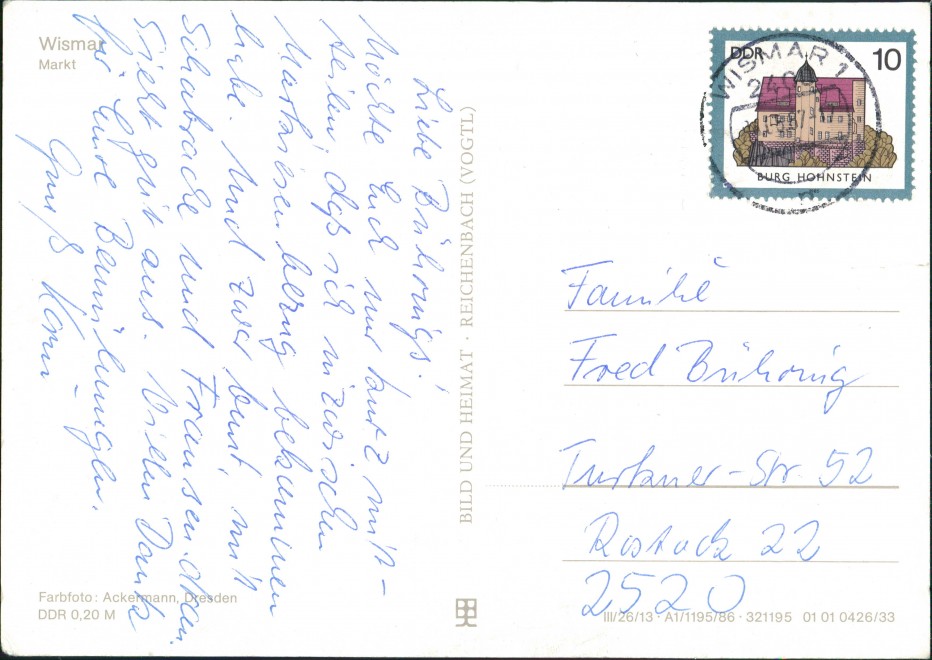 Wismar
Markt
Liebe Bührigs!
Möchte Euch nur kurz mit-
teilen, daß ich inzwischen
Matratzenbezug bekommen
habe. Und zwar bunt, mit
Schabracke und Fransen dran.
Sieht gut aus. Vielen Dank
für Eure Bemühungen.
Gruß
BILD UND HEIMAT · REICHENBACH (VOGTL)
Farbfoto: Ackermann, Dresden
DDR 0,20 M
DDR 10
BURG HOHNSTEIN
WISMAR 1
Familie
Fred
-Str. 52
Rostock 22
2520
III/26/13 · A1/1195/86 · 321195 01 01 0426/33